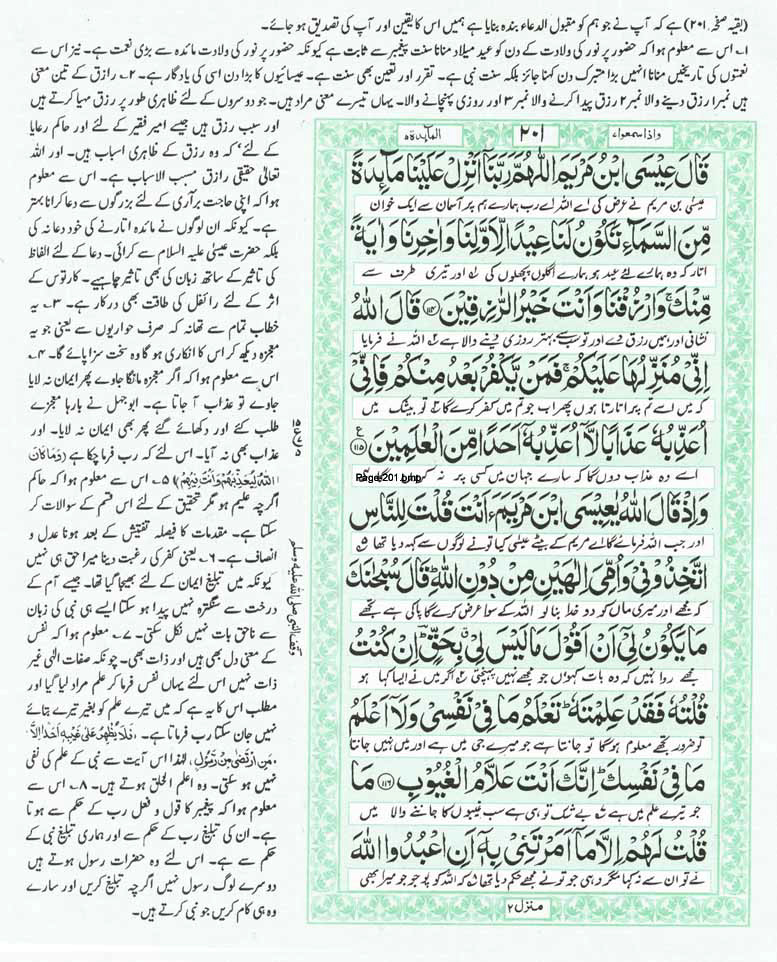 (بقیہ صفحہ ۲۰۱) ہے کہ آپ نے جو ہم کو مقبول الدعاء بندہ بنایا ہے ہمیں اس کا یقین اور آپ کی تصدیق ہو جائے۔
۱۔ اس سے معلوم ہوا کہ حضور پر نور کی ولادت کے دن کو عید میلاد منانا سنت پیغمبر سے ثابت ہے کیونکہ حضور پر نور کی ولادت مائدہ سے بڑی نعمت ہے۔ نیز اس سے
نعمتوں کی تاریخیں منانا انہیں بڑا متبرک دن کہنا جائز بلکہ سنت نبی ہے۔ تقرر اور تعین بھی سنت ہے۔ عیسائیوں کا بڑا دن اسی کی یادگار ہے۔ ۲۔ رازق کے تین معنی
ہیں نمبر۱ رزق دینے والا نمبر۲ رزق پیدا کرنے والا نمبر۳ اور روزی پہنچانے والا۔ یہاں تیسرے معنی مراد ہیں۔ جو دوسروں کے لئے ظاہری طور پر رزق مہیا کرتے ہیں
اور سبب رزق ہیں جیسے امیر فقیر کے لئے اور حاکم رعایا
کے لئے کہ وہ رزق کے ظاہری اسباب ہیں۔ اور اللہ
تعالٰی حقیقی رازق مسبب الاسباب ہے۔ اس سے معلوم
ہوا کہ اپنی حاجت برآری کے لئے بزرگوں سے دعا کرانا بہتر
ہے۔ کیونکہ ان لوگوں نے مائدہ اتارنے کی خود دعا نہ کی
بلکہ حضرت عیسیٰ علیہ السلام سے کرائی۔ دعا کے لئے الفاظ
کی تاثیر کے ساتھ زبان کی بھی تاثیر چاہیے۔ کارتوس کے
اثر کے لئے رائفل کی طاقت بھی درکار ہے۔ ۳۔ یہ
خطاب تمام سے تھا نہ کہ صرف حواریوں سے یعنی جو یہ
معجزہ دیکھ کر اس کا انکاری ہو گا وہ سخت سزا پائے گا۔ ۴۔
اس سے معلوم ہوا کہ اگر معجزہ مانگا جاوے پھر ایمان نہ لایا
جاوے تو عذاب آ جاتا ہے۔ ابوجہل نے بارہا معجزے
طلب کئے اور دکھائے گئے پھر بھی ایمان نہ لایا۔ اور
عذاب بھی نہ آیا۔ اس لئے کہ رب فرما چکا ہے (وَمَا كَانَ
اللهُ لِيُعَذِّبَهُمْ وَأَنْتَ فِيهِمْ) ۵۔ اس سے معلوم ہوا کہ حاکم
اگرچہ علیم ہو مگر تحقیق کے لئے اس قسم کے سوالات کر
سکتا ہے۔ مقدمات کا فیصلہ تفتیش کے بعد ہونا عدل و
انصاف ہے۔ ۶۔ یعنی کفر کی رغبت دینا میرا حق ہی نہیں
کیونکہ میں تبلیغ ایمان کے لئے بھیجا گیا تھا۔ جیسے آم کے
درخت سے سنگترہ نہیں پیدا ہو سکتا ایسے ہی نبی کی زبان
سے ناحق بات نہیں نکل سکتی۔ ۷۔ معلوم ہوا کہ نفس
کے معنی دل بھی ہیں اور ذات بھی۔ چونکہ صفات الٰہی غیر
ذات نہیں اس لئے یہاں نفس فرما کر علم مراد لیا گیا اور
مطلب اس کا یہ ہے کہ میں تیرے علم کو بغیر تیرے بتائے
نہیں جان سکتا رب فرماتا ہے۔ فَلَا يُظْهِرُ عَلٰى غَيْبِهٖ اَحَدًا اِلَّا
مَنِ ارْتَضٰى مِنْ رَّسُوْلٍ، لہٰذا اس آیت سے نبی کے علم کی نفی
نہیں ہو سکتی۔ وہ اعلم الخلق ہوتے ہیں۔ ۸۔ اس سے
معلوم ہوا کہ پیغمبر کا قول و فعل رب کے حکم سے ہوتا
ہے۔ ان کی تبلیغ رب کے حکم سے اور ہماری تبلیغ نبی کے
حکم سے ہے۔ اس لئے وہ حضرات رسول ہوتے ہیں
دوسرے لوگ رسول نہیں اگرچہ تبلیغ کریں اور سارے
وہ ہی کام کریں جو نبی کرتے ہیں۔
واذا سمعوا ۷
۲۰۱
المآئدة ۵
قَالَ عِيْسَى ابْنُ مَرْيَمَ اللّٰهُمَّ رَبَّنَاۤ اَنْزِلْ عَلَيْنَا مَآئِدَةً
عیسیٰ بن مریم نے عرض کی اے اللہ اے رب ہمارے ہم پر آسمان سے ایک خوان
مِّنَ السَّمَآءِ تَكُوْنُ لَنَا عِيْدًا لِّاَوَّلِنَا وَاٰخِرِنَا وَاٰيَةً
اتار کہ وہ ہمارے لئے عید ہو ہمارے اگلوں پچھلوں کی ۱ اور تیری طرف سے
مِّنْكَ ۚ وَارْزُقْنَا وَاَنْتَ خَيْرُ الرّٰزِقِيْنَ ۝۱۱۴ قَالَ اللّٰهُ
نشانی اور ہمیں رزق دے اور تو سب سے بہتر روزی دینے والا ہے ۲ اللہ نے فرمایا
اِنِّيْ مُنَزِّلُهَا عَلَيْكُمْ ۚ فَمَنْ يَّكْفُرْ بَعْدُ مِنْكُمْ فَاِنِّيْۤ
کہ میں اسے تم پر اتارتا ہوں پھر اب جو تم میں کفر کرے گا ۳ تو بیشک میں
اُعَذِّبُهٗ عَذَابًا لَّاۤ اُعَذِّبُهٗۤ اَحَدًا مِّنَ الْعٰلَمِيْنَ ۝۱۱۵ ع
اسے وہ عذاب دوں گا کہ سارے جہان میں کسی پر نہ کروں گا ۴
Page 201.bmp
وَاِذْ قَالَ اللّٰهُ يٰعِيْسَى ابْنَ مَرْيَمَ ءَاَنْتَ قُلْتَ لِلنَّاسِ
اور جب اللہ فرمائے گا اے مریم کے بیٹے عیسیٰ کیا تو نے لوگوں سے کہہ دیا تھا ۵
اتَّخِذُوْنِيْ وَاُمِّيَ اِلٰهَيْنِ مِنْ دُوْنِ اللّٰهِ ؕ قَالَ سُبْحٰنَكَ
کہ مجھے اور میری ماں کو دو خدا بنا لو اللہ کے سوا عرض کرے گا پاکی ہے تجھے
مَا يَكُوْنُ لِيْۤ اَنْ اَقُوْلَ مَا لَيْسَ لِيْ بِحَقٍّ ؕ اِنْ كُنْتُ
مجھے روا نہیں کہ وہ بات کہوں جو مجھے نہیں پہنچتی ۶ اگر میں نے ایسا کہا ہو
قُلْتُهٗ فَقَدْ عَلِمْتَهٗ ؕ تَعْلَمُ مَا فِيْ نَفْسِيْ وَلَاۤ اَعْلَمُ
تو ضرور تجھے معلوم ہوگا تو جانتا ہے جو میرے جی میں ہے اور میں نہیں جانتا
مَا فِيْ نَفْسِكَ ؕ اِنَّكَ اَنْتَ عَلَّامُ الْغُيُوْبِ ۝۱۱۶ مَا
جو تیرے علم میں ہے ۷ بے شک تو ہی ہے سب غیبوں کا جاننے والا میں
قُلْتُ لَهُمْ اِلَّا مَاۤ اَمَرْتَنِيْ بِهٖۤ اَنِ اعْبُدُوا اللّٰهَ
نے تو ان سے نہ کہا مگر وہی جو تو نے مجھے حکم دیا تھا ۸ کہ اللہ کو پوجو جو میرا بھی
منزل ۲
وقف النبی صلی اللہ علیہ وسلم